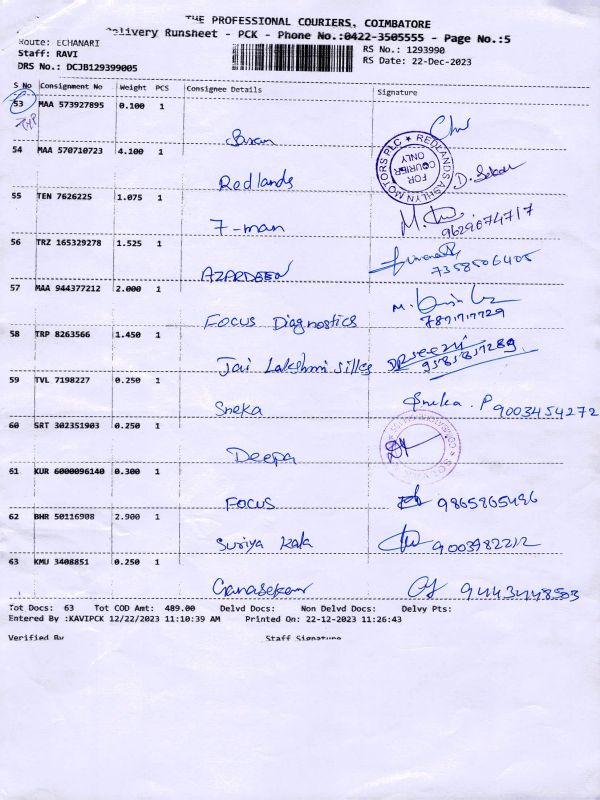 THE PROFESSIONAL COURIERS, COIMBATORE
Delivery Runsheet - PCK - Phone No.:0422-3505555 - Page No.:5
Route: ECHANARI
RS No.: 1293990
Staff: RAVI
RS Date: 22-Dec-2023
DRS No.: DCJB129399005
S No Consignment No Weight PCS Consignee Details Signature
53 MAA 573927895 0.100 1
54 MAA 570710723 4.100 1
Redlands
REDLANDS ASHLYN MOTORS PLC
FOR COURIER ONLY
55 TEN 7626225 1.075 1
7-man
9629674717
56 TRZ 165329278 1.525 1
AZARDEEN
7358506405
57 MAA 944377212 2.000 1
Focus Diagnostics
58 TRP 8263566 1.450 1
Jai Lakshmi silks
9585857289
59 TVL 7198227 0.250 1
Sneka
Sneka . P 9003454272
60 SRT 302351903 0.250 1
Deepa
61 KUR 6000096140 0.300 1
FOCUS
9865865496
62 BHR 50116908 2.900 1
Suriya kala
9003982212
63 KMU 3408851 0.250 1
Ganasekar
9443448503
Tot Docs: 63 Tot COD Amt: 489.00 Delvd Docs: Non Delvd Docs: Delvy Pts:
Entered By :KAVIPCK 12/22/2023 11:10:39 AM Printed On: 22-12-2023 11:26:43
Verified By Staff Signature